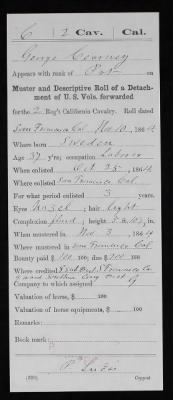 C 2 Cav. Cal.
George Kearney
Appears with rank of Pvt on
Muster and Descriptive Roll of a Detach-
ment of U. S. Vols. forwarded
for the 2 Reg't California Cavalry. Roll dated
San Francisco Cal Nov 10, 1864
Where born Sweden
Age 37 y'rs; occupation Laborer
When enlisted Oct 25, 1864
Where enlisted San Francisco Cal
For what period enlisted 3 years.
Eyes Hazel; hair Light
Complexion flord; height 5 ft. 10½ in.
When mustered in Nov 3, 1864
Where mustered in San Francisco Cal
Bounty paid $ 100; due $ 200 100
Where credited
Company to which assigned
Valuation of horse, $ 100
Valuation of horse equipments, $ 100
Remarks:
Book mark:
Copyist.